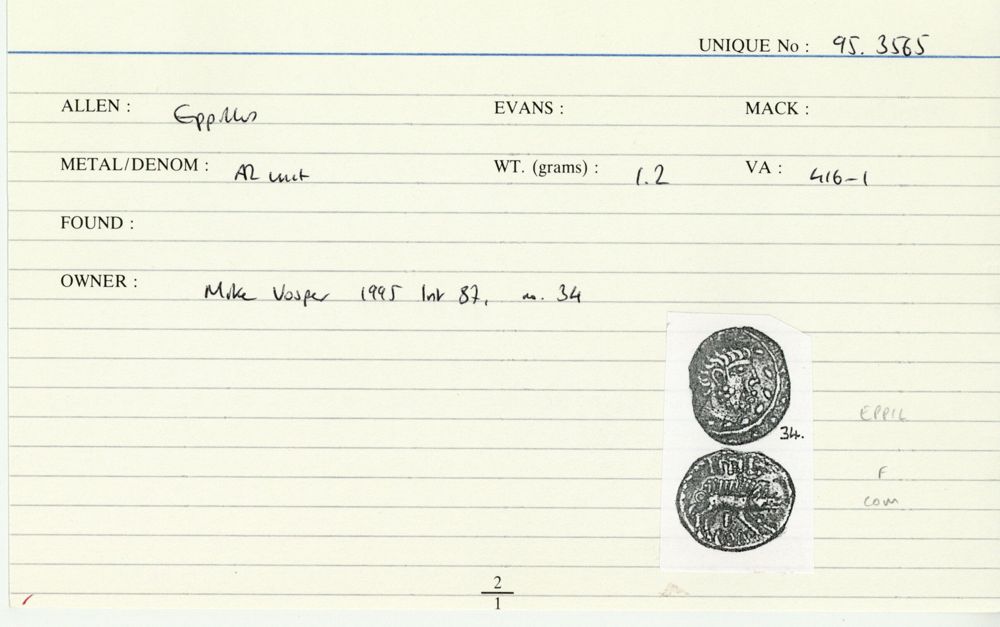 UNIQUE No : 95.3565
ALLEN : Eppillus EVANS : MACK :
METAL/DENOM : AR unit WT. (grams) : 1.2 VA : 416-1
FOUND :
OWNER : Mike Vosper 1995 list 87, no. 34
34.
EPPIL
F
COM
2
1